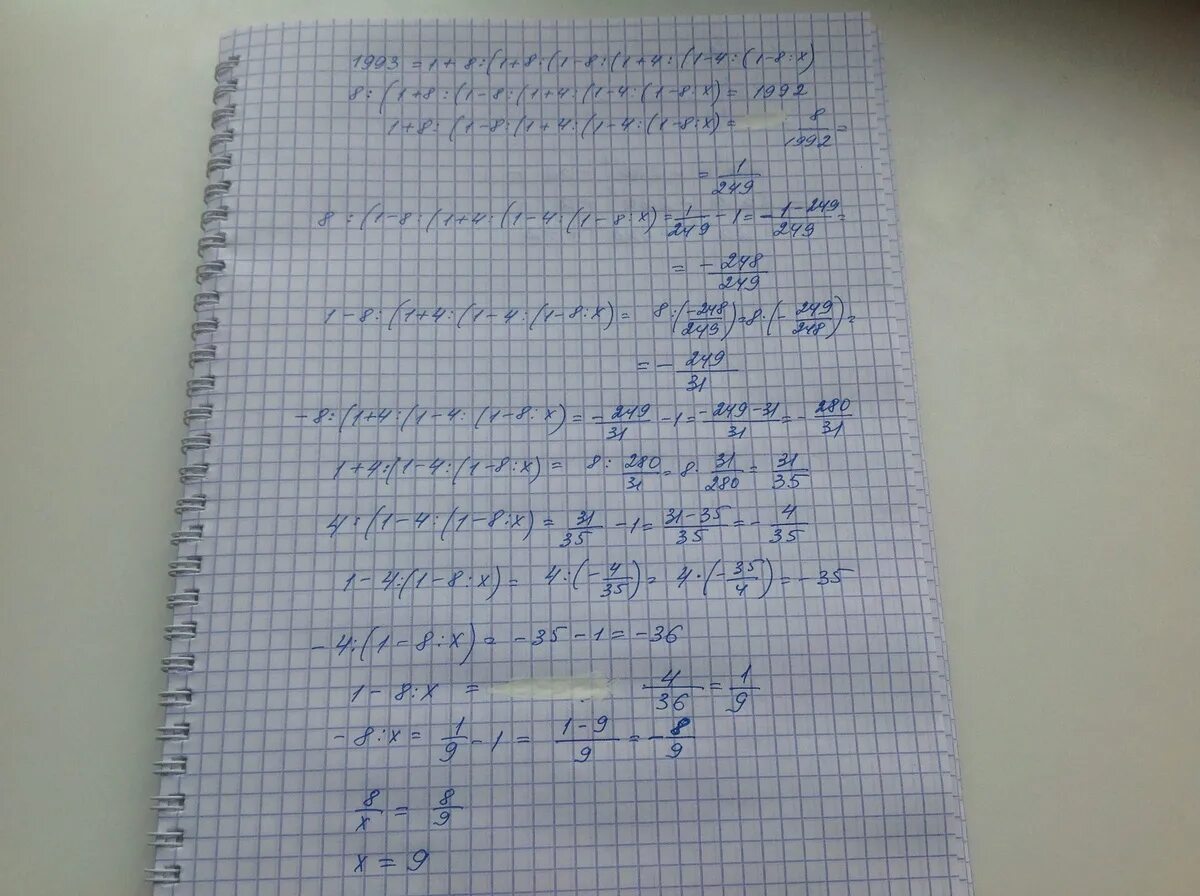 1993 = 1 + 8 : (1+8 : (1-8 : (1+4 : (1-4 : (1-8 : x)
8 : (1+8 : (1-8 : (1+4 : (1-4 : (1-8 : x) = 1992
1+8 : (1-8 : (1+4 : (1-4 : (1-8 : x) = 8/1992 =
= 1/249
8 : (1-8 : (1+4 : (1-4 : (1-8 : x) = 1/249 - 1 = -1-249/249 =
= - 248/249
1-8 : (1+4 : (1-4 : (1-8 : x) = 8 : (-248/249) = 8 · (-249/248) =
= - 249/31
-8 : (1+4 : (1-4 : (1-8 : x) = - 249/31 - 1 = -249-31/31 = - 280/31
1+4 : (1-4 : (1-8 : x) = 8 : 280/31 = 8 · 31/280 = 31/35
4 : (1-4 : (1-8 : x) = 31/35 - 1 = 31-35/35 = - 4/35
1-4 : (1-8 : x) = 4 : (-4/35) = 4 · (-35/4) = -35
-4 : (1-8 : x) = -35-1 = -36
1-8 : x = 4/36 = 1/9
-8 : x = 1/9 - 1 = 1-9/9 = - 8/9
8/x = 8/9
x = 9